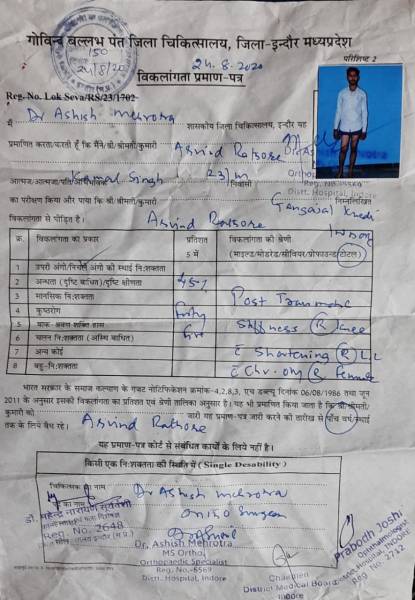 गोविन्द बल्लभ पंत जिला चिकित्सालय, जिला-इन्दौर मध्यप्रदेश
150
24/8/20
24.8.2020
परिशिष्ट 2
विकलांगता प्रमाण-पत्र
Reg. No. Lok Seva/RS/23/1702
मैं Dr Ashish Mehrotra शासकीय जिला चिकित्सालय, इन्दौर यह
प्रमाणित करता/करती हूँ कि मैंने/श्री/श्रीमती/कुमारी Arvind Rathore
Distt. Hospital, Indore
आत्मज/आत्मजा/पति/ Singh 23/m निवासी
Gangawal
का परीक्षण किया और पाया कि श्री/श्रीमती/कुमारी Arvind Rathore निम्नलिखित
विकलांगता से पीड़ित है।
Indore
क्र. विकलांगता का प्रकार प्रतिशत 5 में विकलांगता की श्रेणी (माइल्ड/मोडरेड/सीवियर/प्रोफाउन्ड/टोटल)
1 उपरी अंगो/निचले अंगो की स्थाई निःशक्तता
2 अन्धता (दृष्टि बाधित)/दृष्टि क्षीणता 45%
3 मानसिक निःशक्तता Post Traumatic
4 कुष्ठरोग Forty
5 वाक श्रवण शक्ति हास five Stiffness (R) Knee
6 चलन निःशक्तता (अस्थि बाधित)
7 अन्य कोई Shortening (R) L.L
8 बहु-निःशक्तता (R)
भारत सरकार के समाज कल्याण के गजट नोटिफिकेशन क्रमांक-4,2,8,3, एच डब्ल्यू दिनांक 06/08/1986 तथा जून
2011 के अनुसार इसकी विकलांगता का प्रतिशत एवं श्रेणी तालिका अनुसार है। यह भी प्रमाणित किया जाता है कि श्री/श्रीमती/
कुमारी को Arvind Rathore जारी यह प्रमाण-पत्र जारी करने की तारीख से पाँच वर्ष/स्थाई
तक के लिये वैध रहे।
यह प्रमाण-पत्र कोर्ट से संबंधित कार्यों के लिये नहीं है।
किसी एक निःशक्तता की स्थिति में (Single Desability)
चिकित्सक का नाम Dr Ashish Mehrotra
का नाम Ortho Surgeon
डॉ. महेन्द्र नारायण
Reg. No. 2648
Dr. Ashish Mehrotra
MS Ortho
Orthopaedic Specialist
Reg. No.-6569
Distt. Hospital, Indore
Chairmen
District Medical Board
Indore
Prabodh Joshi
Ophthalmologist
Hospital, INDORE
Reg. No. 2712